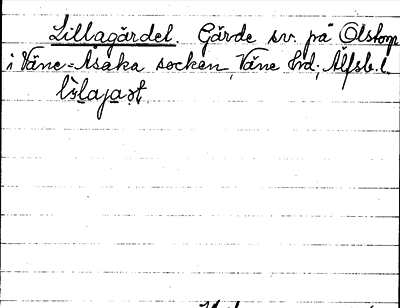 Lillagärdet. Gärde sv. på Olstorp
i Väne-Åsaka socken, Väne hd; Älfsb. l.